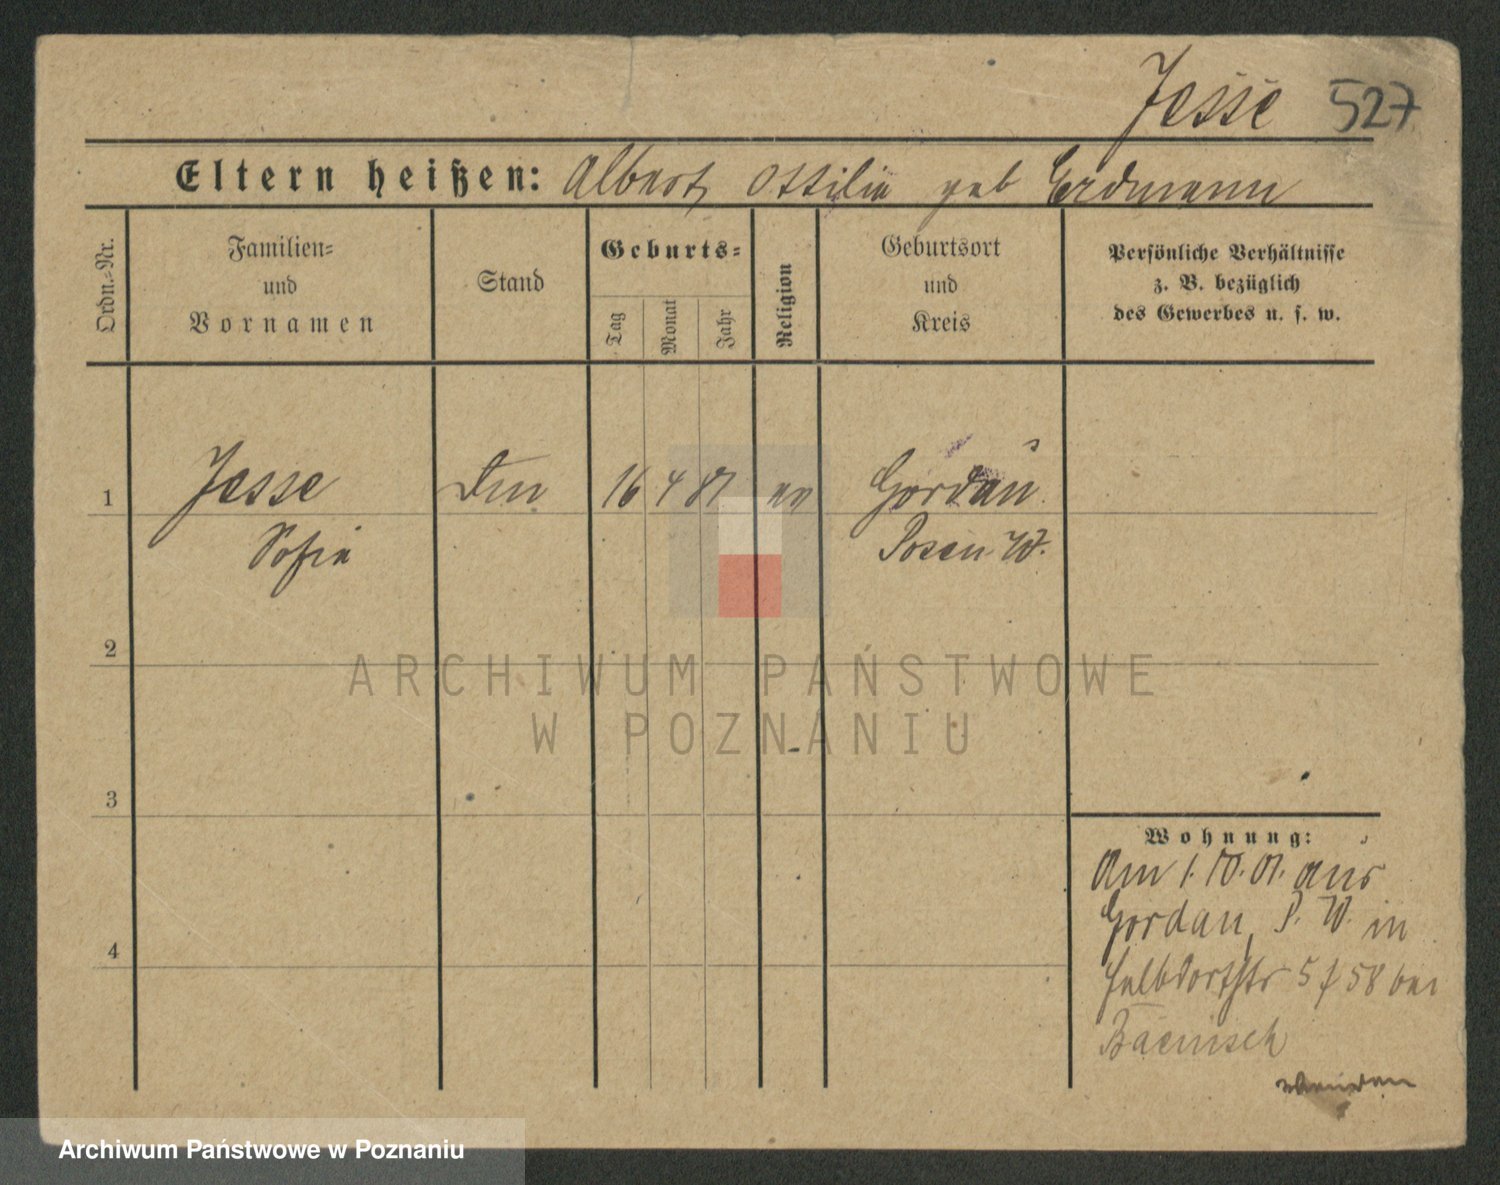 Jesse 527
Eltern heißen: Albert Ottilie geb Erdmann
Ordn.-Nr.
Familien-
und
Vornamen
Stand
Geburts-
Tag
Monat
Jahr
Religion
Geburtsort
und
Kreis
Persönliche Verhältnisse
z. B. bezüglich
des Gewerbes u. s. w.
1 Jesse 16 4 81 ev Gordan
Sofie Posen W.
2
3
4
Wohnung:
Am 1.10.01. aus
Gordan, P. W. in
5 58 bei
Baenisch
ARCHIWUM PAŃSTWOWE
W POZNANIU
Archiwum Państwowe w Poznaniu